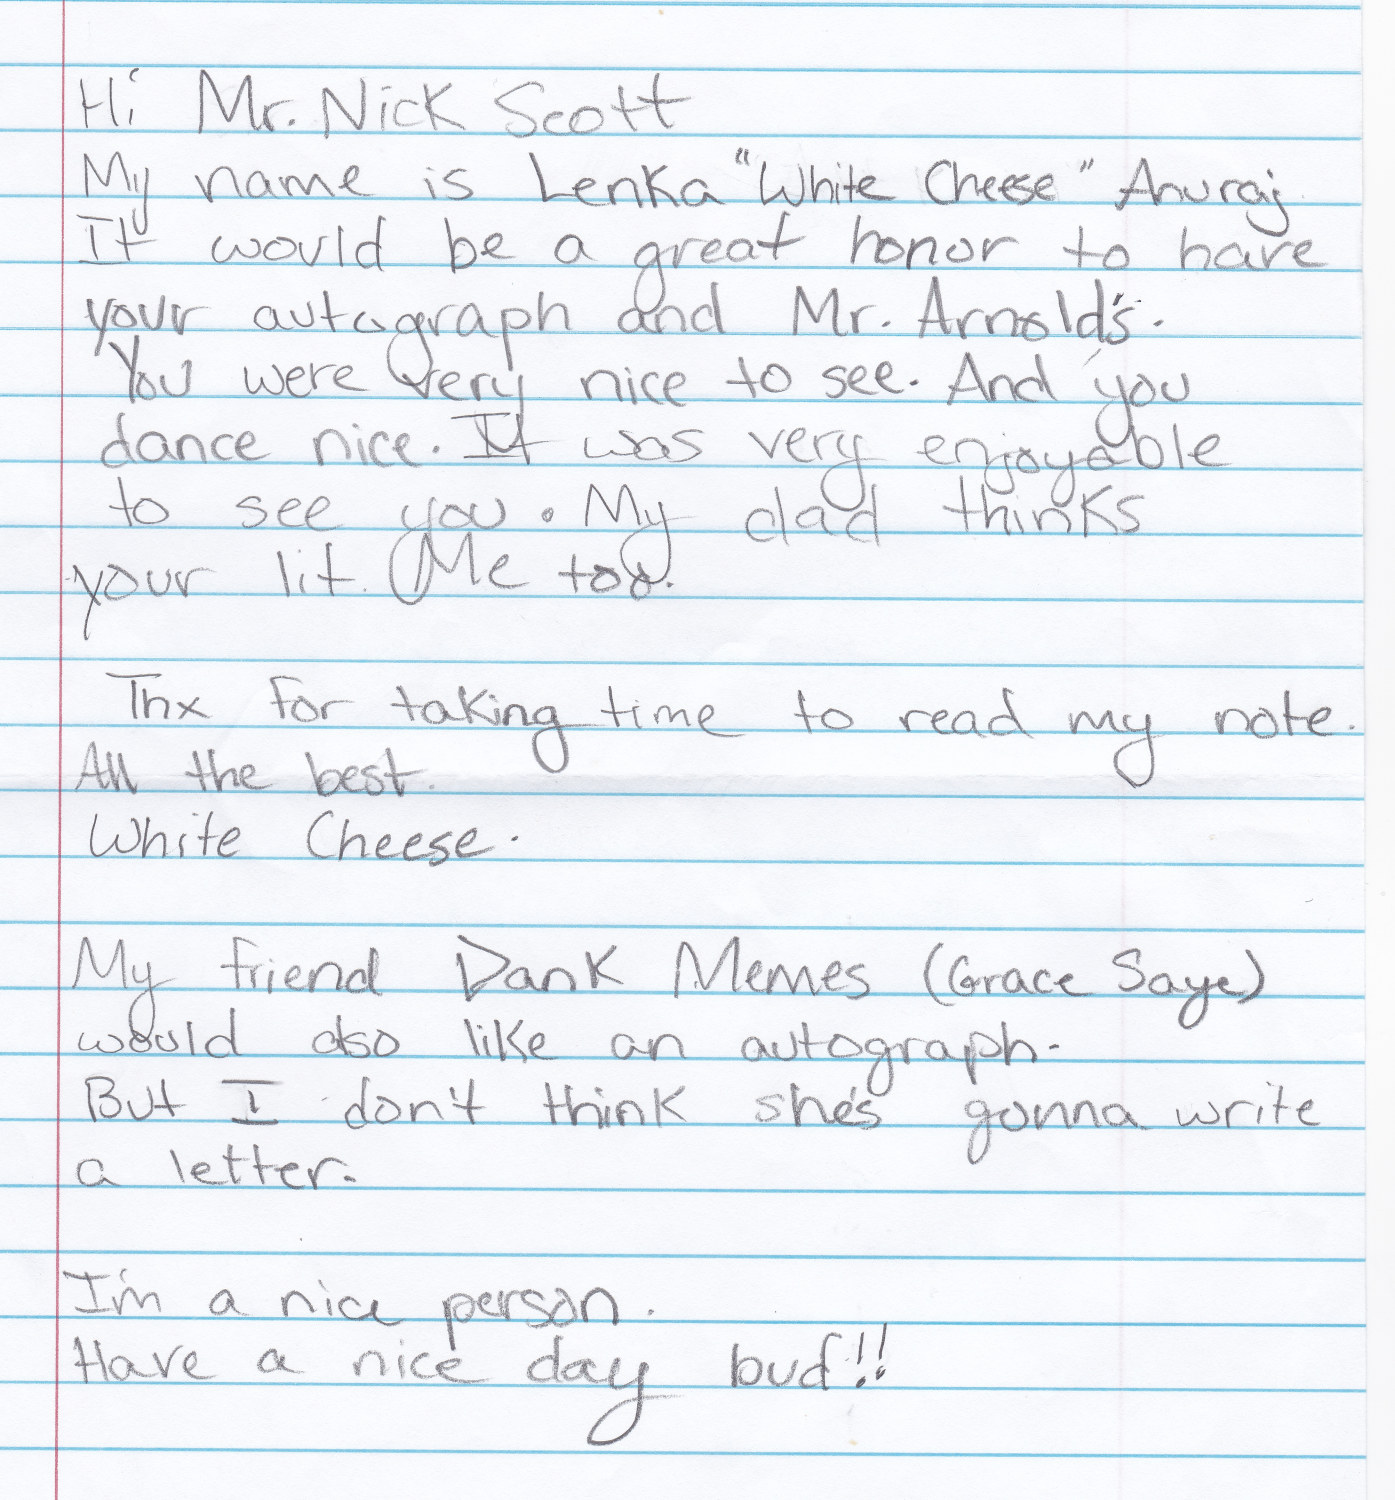 Hi Mr. Nick Scott
My name is Lenka "White Cheese" Anuraj
It would be a great honor to have
your autograph and Mr. Arnold's.
You were very nice to see. And you
dance nice. It was very enjoyable
to see you. My dad thinks
your lit. Me too.
Thx for taking time to read my note.
All the best.
White Cheese.
My friend Dank Memes (Grace Saye)
would also like an autograph.
But I don't think she's gonna write
a letter.
I'm a nice person.
Have a nice day bud!!